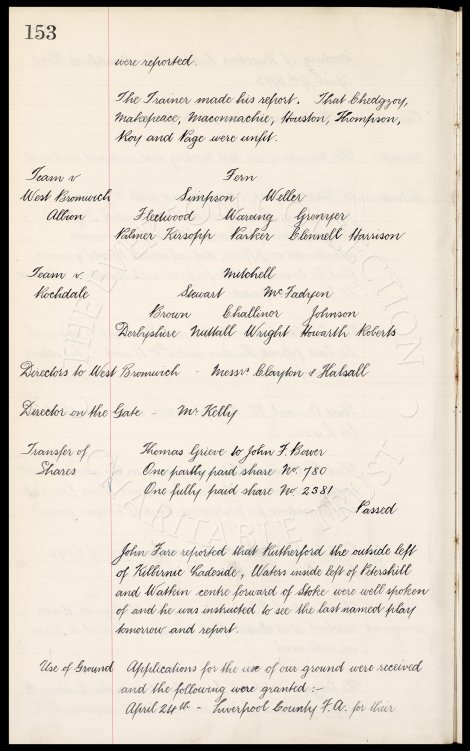 153
were reported.
The Trainer made his report. That Chedgzoy,
Makepeace, Maconnachie, Houston, Thompson,
Roy and Page were unfit.
Team v Fern
West Bromwich Simpson Weller
Albion Fleetwood Wareing Grenyer
Palmer Kirsopp Parker Clennell Harrison
Team v. Mitchell
Rochdale Stewart McFadyen
Brown Challinor Johnson
Derbyshire Nuttall Wright Howarth Roberts
Directors to West Bromwich - Messrs Clayton & Halsall
Director on the Gate Mr Kelly
Transfer of Thomas Grieve to John F. Bower
Shares One partly paid share No. 780
One fully paid share No. 2381
Passed
John Fare reported that Rutherford the outside left
of Kilbirnie Ladeside, Waters inside left of Petershill
and Watkin centre forward of Stoke were well spoken
of and he was instructed to see the last named play
tomorrow and report.
Use of Ground Applications for the use of our ground were received
and the following were granted :-
April 24th - Liverpool County F.A. for their
THE EVERTON COLLECTION
CHARITABLE TRUST